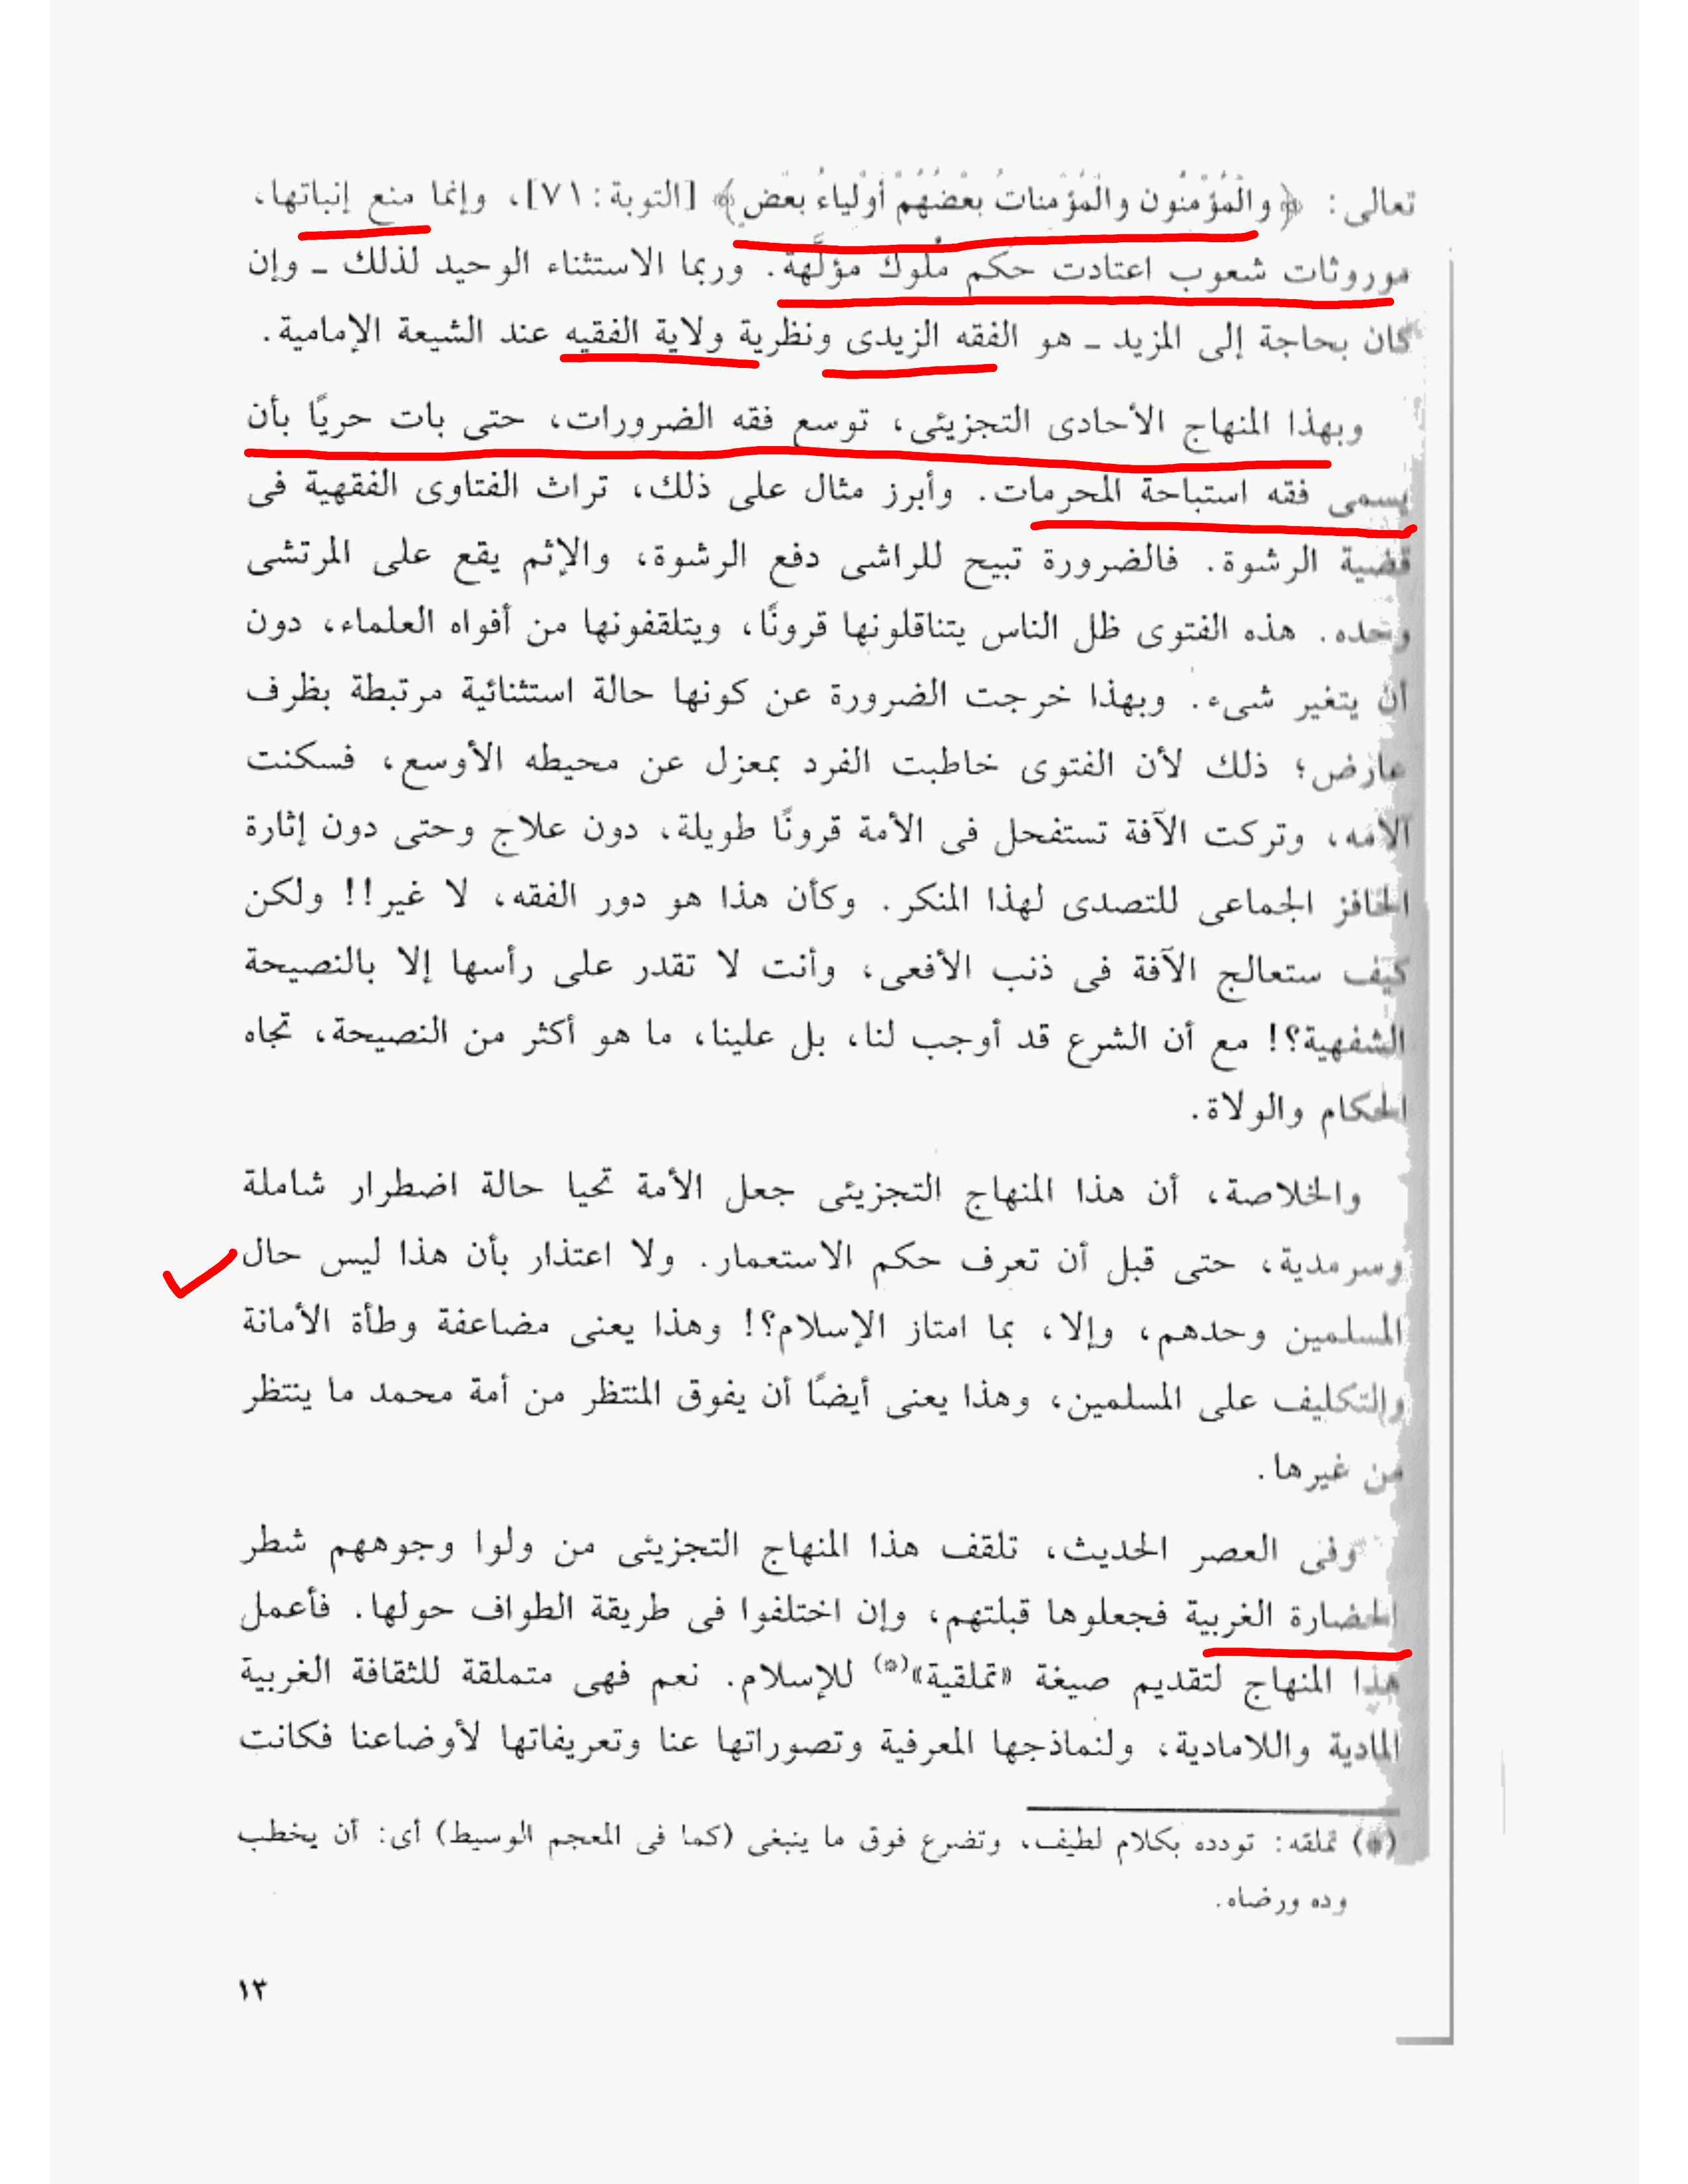 تعالى: ﴿والْمُؤْمنُون والْمُؤْمناتُ بعْضُهُمْ أوْلياءُ بعْض﴾ [التوبة: ٧١]، وإنما منع إنباتها،
موروثات شعوب اعتادت حكم ملوك مؤلَّهة. وربما الاستثناء الوحيد لذلك ـ وإن
كان بحاجة إلى المزيد ـ هو الفقه الزيدى ونظرية ولاية الفقيه عند الشيعة الإمامية.
وبهذا المنهاج الأحادى التجزيئى، توسع فقه الضرورات، حتى بات حريًا بأن
يسمى فقه استباحة المحرمات. وأبرز مثال على ذلك، تراث الفتاوى الفقهية فى
قضية الرشوة. فالضرورة تبيح للراشى دفع الرشوة، والإثم يقع على المرتشى
وحده. هذه الفتوى ظل الناس يتناقلونها قرونًا، ويتلقفونها من أفواه العلماء، دون
أن يتغير شىء. وبهذا خرجت الضرورة عن كونها حالة استثنائية مرتبطة بظرف
عارض؛ ذلك لأن الفتوى خاطبت الفرد بمعزل عن محيطه الأوسع، فسكنت
آلامه، وتركت الآفة تستفحل فى الأمة قرونًا طويلة، دون علاج وحتى دون إثارة
الحافز الجماعى للتصدى لهذا المنكر. وكأن هذا هو دور الفقه، لا غير!! ولكن
كيف ستعالج الآفة فى ذنب الأفعى، وأنت لا تقدر على رأسها إلا بالنصيحة
الشفهية؟! مع أن الشرع قد أوجب لنا، بل علينا، ما هو أكثر من النصيحة، تجاه
الحكام والولاة.
والخلاصة، أن هذا المنهاج التجزيئى جعل الأمة تحيا حالة اضطرار شاملة
وسرمدية، حتى قبل أن تعرف حكم الاستعمار. ولا اعتذار بأن هذا ليس حال
المسلمين وحدهم، وإلا، بما امتاز الإسلام؟! وهذا يعنى مضاعفة وطأة الأمانة
والتكليف على المسلمين، وهذا يعنى أيضًا أن يفوق المنتظر من أمة محمد ما ينتظر
من غيرها.
وفى العصر الحديث، تلقف هذا المنهاج التجزيئى من ولوا وجوههم شطر
الحضارة الغربية فجعلوها قبلتهم، وإن اختلفوا فى طريقة الطواف حولها. فأعمل
هذا المنهاج لتقديم صيغة «تملقية»(*) للإسلام. نعم فهى متملقة للثقافة الغربية
المادية واللامادية، ولنماذجها المعرفية وتصوراتها عنا وتعريفاتها لأوضاعنا فكانت
(*) تملقه: تودده بكلام لطيف، وتضرع فوق ما ينبغى (كما فى المعجم الوسيط) أى: أن يخطب
وده ورضاه.
١٣